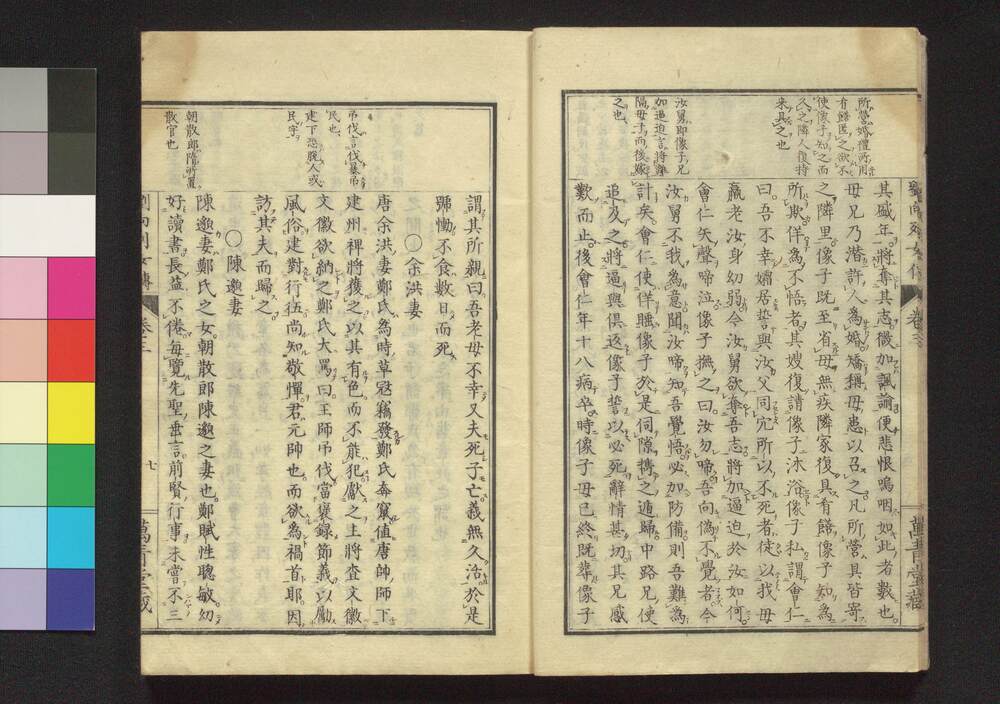 所營婚禮所用
有餚匱之欲不
使像子知之而
久之隣人復持
來具之也
汝舅即像子兄
加逼迫言將
隔母子而後嫁
之也
其盛年將奪其志微加諷諭便悲恨嗚咽如此者數也
母兄乃潛許人為婚矯稱母患以召之凡所營具皆寄
之隣里像子既至省母無疾隣家復具有餚像子知為
所欺佯為不悟者其嫂復請像子沐浴像子私謂會仁
曰吾不幸孀居誓與汝父同穴所以不死者徒以我母
羸老汝身幼弱今汝舅欲奪吾志將加逼迫於汝如何
會仁失聲啼泣像子撫之曰汝勿啼吾向偽不覺者令
汝舅不我為意聞汝啼知吾覺悟必加防備則吾難為
計矣會仁便佯睡像子於是伺隙攜之遁歸中路兄使
追及之將逼與俱返像子誓以必死辭情甚切其兄感
歎而止後會仁年十八病卒時像子母已終既葬像子
弔伐言伐暴弔
民也
建下恐脫人或
民字
朝散郎隋所置
散官也
謂其所親曰吾老母不幸又夫死子亡義無久活於是
號慟不食數日而死
〇余洪妻
唐余洪妻鄭氏為時草寇竊發鄭氏奔竄值唐帥師下
建州裨將獲之以其有色而不能犯獻之主將查文徽
文徽欲納之鄭氏大罵曰王師弔伐當褒錄節義以勵
風俗建對行伍尚知敬憚君元帥也而欲為禍首耶因
訪其夫而歸之
〇陳邈妻
陳邈妻鄭氏之女朝散郎陳邈之妻也鄭賦性聰敏幼
好讀書長益不倦每覽先聖垂言前賢行事未嘗不三
劉向列女傳 卷三 七 萬青堂藏